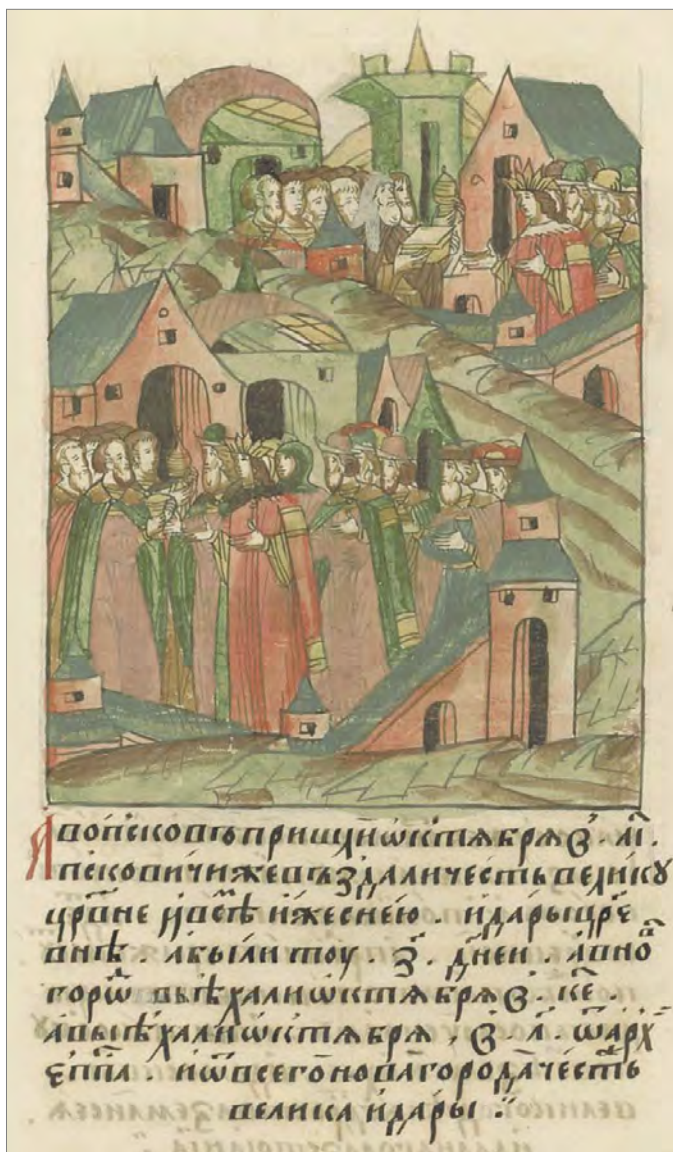 А во псковъ пришли ѡктѧбрѧ въ . л҃і.
псковичи ж въздали честь велику
црв҃не и всѣ иже с нею . и дары црє
внѣ . а были тоу . з҃ . дн҃еи . а в но
городъ въѣхали ѡктѧбрѧ в҃ . ке҃ .
а выѣхали ѡктѧбрѧ , в҃ . л҃ . ѿ арх
єпп҃а . и ѿ всего новагорода честь
велика и дары